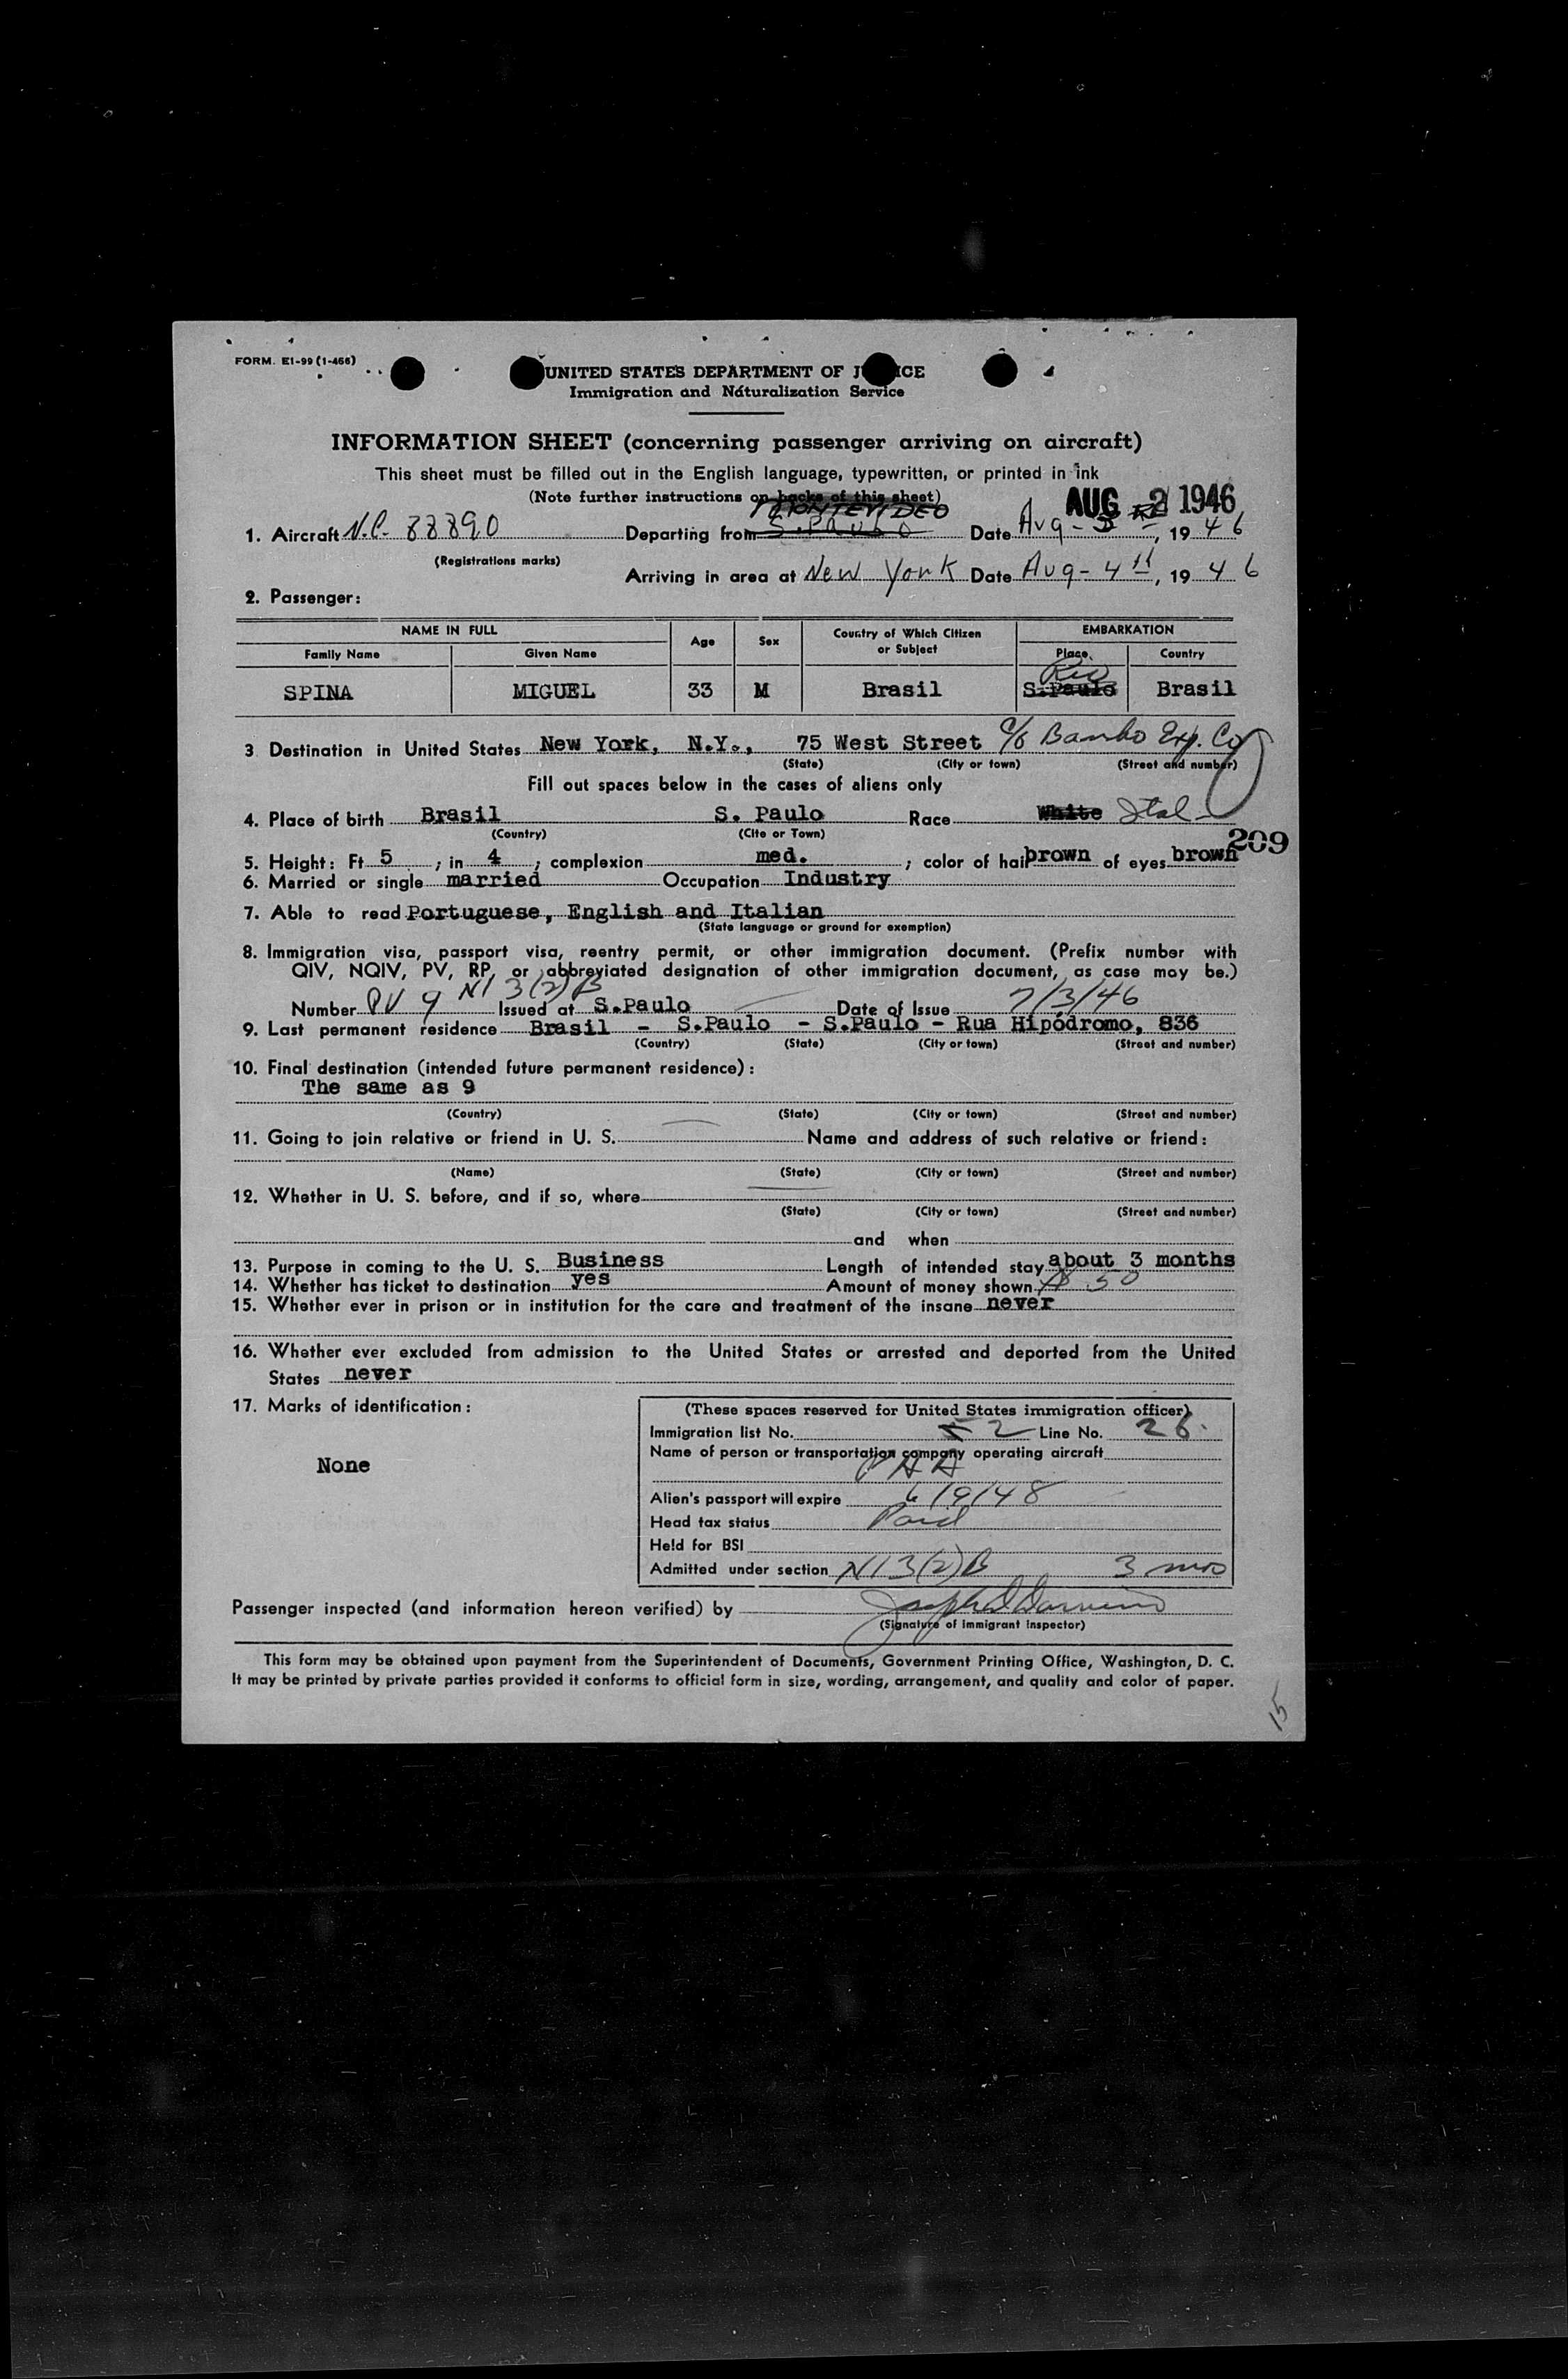 FORM. EI-99 (1-466)
UNITED STATES DEPARTMENT OF J ICE
Immigration and Naturalization Service
INFORMATION SHEET (concerning passenger arriving on aircraft)
This sheet must be filled out in the English language, typewritten, or printed in ink
(Note further instructions on backs of this sheet)
AUG 2 1946
MONTEVIDEO
1. Aircraft N.C. 88890 Departing from S. Paulo Date Aug - , 19 46
(Registrations marks)
Arriving in area at New York Date Aug - 4, 19 46
2. Passenger:
NAME IN FULL Age Sex Country of Which Citizen or Subject EMBARKATION
Family Name Given Name Place Country
Rio
SPINA MIGUEL 33 M Brasil S.Paulo Brasil
3 Destination in United States New York, N.Y., 75 West Street c/o Exp. Co
(State) (City or town) (Street and number)
Fill out spaces below in the cases of aliens only
4. Place of birth Brasil S. Paulo Race White Ital
(Country) (Cite or Town)
209
5. Height: Ft 5 ; in 4 ; complexion med. ; color of hair brown of eyes brown
6. Married or single married Occupation Industry
7. Able to read Portuguese, English and Italian
(State language or ground for exemption)
8. Immigration visa, passport visa, reentry permit, or other immigration document. (Prefix number with
QIV, NQIV, PV, RP, or abbreviated designation of other immigration document, as case may be.)
Number PV 9 NI 3(2)B Issued at S.Paulo Date of Issue 7/3/46
9. Last permanent residence Brasil - S.Paulo - S.Paulo - Rua Hipódromo, 836
(Country) (State) (City or town) (Street and number)
10. Final destination (intended future permanent residence):
The same as 9
(Country) (State) (City or town) (Street and number)
11. Going to join relative or friend in U. S. Name and address of such relative or friend:
(Name) (State) (City or town) (Street and number)
12. Whether in U. S. before, and if so, where
(State) (City or town) (Street and number)
and when
13. Purpose in coming to the U. S. Business Length of intended stay about 3 months
14. Whether has ticket to destination yes Amount of money shown $ 50
15. Whether ever in prison or in institution for the care and treatment of the insane never
16. Whether ever excluded from admission to the United States or arrested and deported from the United
States never
17. Marks of identification:
None
(These spaces reserved for United States immigration officer)
Immigration list No. 2 Line No. 26
Name of person or transportation company operating aircraft
PAA
Alien's passport will expire 6/9/48
Head tax status Paid
Held for BSI
Admitted under section NI 3(2)B 3 mos
Passenger inspected (and information hereon verified) by
(Signature of immigrant inspector)
This form may be obtained upon payment from the Superintendent of Documents, Government Printing Office, Washington, D. C.
It may be printed by private parties provided it conforms to official form in size, wording, arrangement, and quality and color of paper.
15